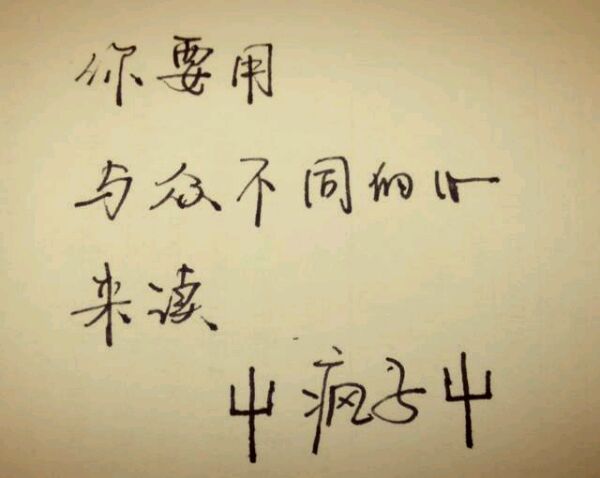 你要用
与众不同的心
来读
屮疯子屮